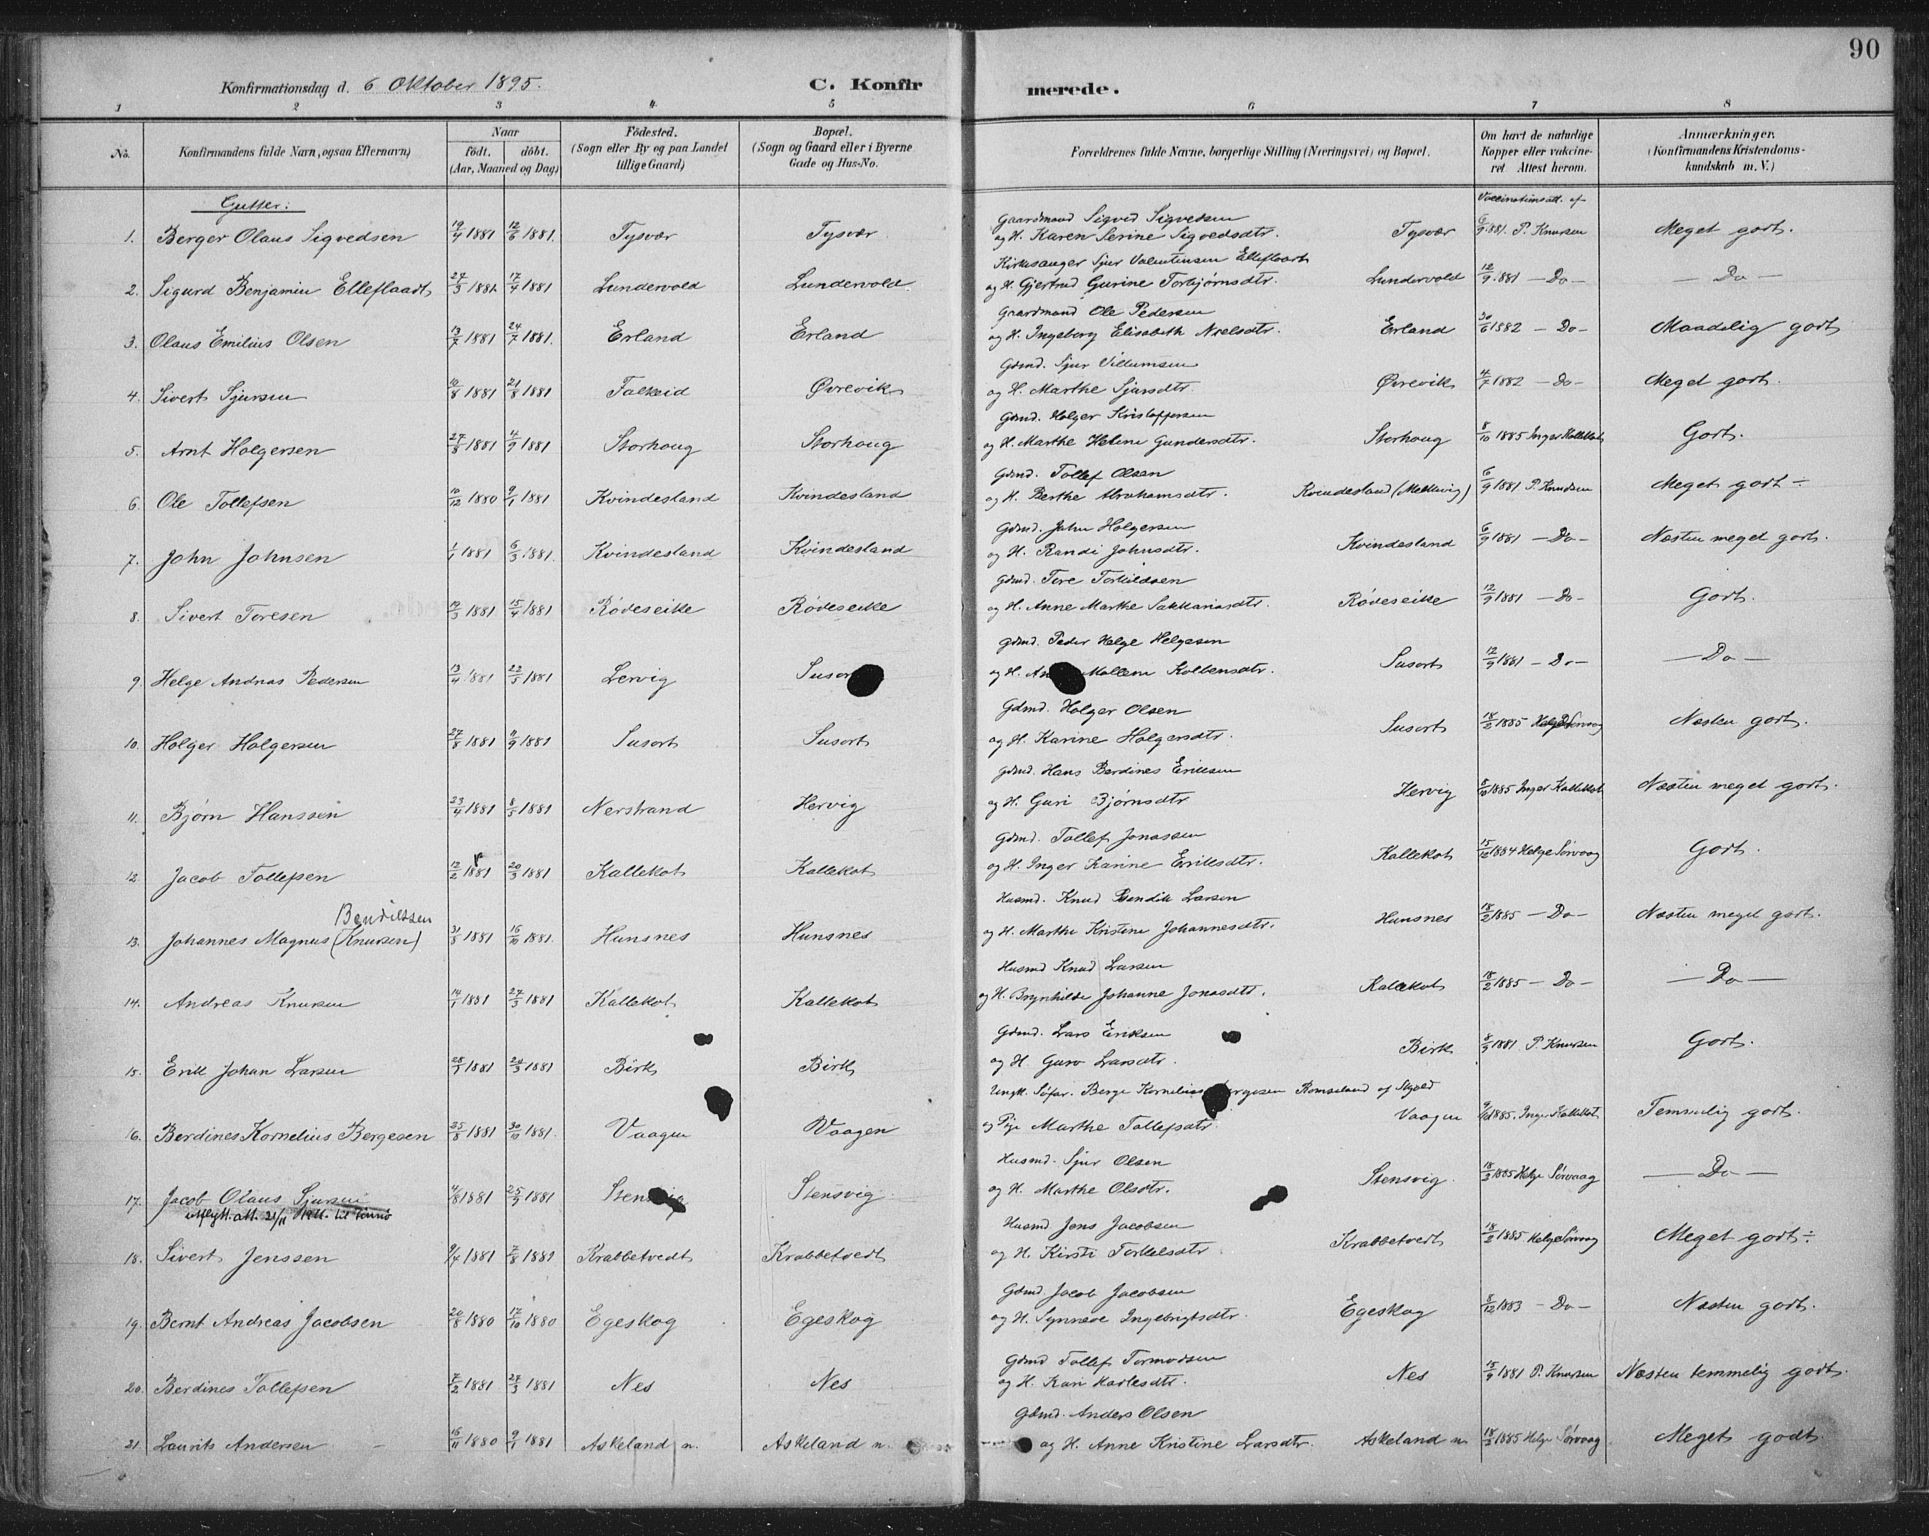 90
Konfirmationsdag d. 6 Oktober 1895. C. Konfirmerede.
1 2 3 4 5 6 7 8
No. Konfirmandens fulde Navn, ogsaa Efternavn) Naar födt. döbt. (Aar, Maaned og Dag) Födested. (Sogn eller By og paa Landet tillige Gaard) Bopæl. (Sogn og Gaard eller i Byerne Gade og Hus-No. Forældrenes fulde Navne, borgerlige Stilling (Næringsvei) og Bopæl. Om havt de naturlige Kopper eller vakcineret Attest herom. Anmærkninger. (Konfirmandens Kristendomskundskab m. V.)
Gutter: Vaccinationsatt. af
Gaardmand Sigved Sigvedsen
1. Berger Olaus Sigvedsen 19/4 1881 12/6 1881. Tysvær Tysvær og H. Karen Serine Sigvedsdtr. Tysvær 6/9 1881. P. Knutsen Meget godt.
Kirkesanger Sjur Valentinsen Elleflaadt
2. Sigurd Benjamin Elleflaadt 27/3 1881 17/4 1881 Lundervold Lundervold og H. Gjertrud Gurine Torbjørnsdtr. Lundervold 12/9 1881 - Do - - Do -
Gaardmand Ole Pedersen
3. Olaus Emilius Olsen 13/7 1881 24/7 1881. Erland Erland og H. Ingeborg Elisabeth Nielsdtr. Erland 30/6 1882 - Do - Maadelig godt
Gdmd. Sjur Villumsen
4. Sivert Sjursen 10/8 1881 21/8 1881 Falkeid Øvrevik og H. Marthe Sjursdtr. Øvrevik 4/7 1882 - Do - Meget godt.
Gdmd. Holger Kristoffersen
5. Arnt Holgersen 27/8 1881 4/9 1881 Storhaug Storhaug og H. Marthe Helene Gundersdtr. Storhaug 8/10 1885 Inger Kallekot Godt.
Gdmd. Tollef Olsen
6. Ole Tollefsen 10/12 1880 9/1 1881 Kvindesland Kvindesland og H. Berthe Abrahamsdtr. Kvindesland 6/9 1881 P. Knudsen Meget godt ÷
Gdmd. John Holgersen
7. John Johnsen 1/1 1881 6/3 1881. Kvindesland Kvindesland og H. Randi Johnsdtr. Kvindesland 6/9 1881 - Do - Næsten meget godt.
Gdmd. Tore Torkildsen
8. Sivert Toresen 10/3 1881 15/4 1881 Rödeseike Rödeseike og H. Anne Marthe Sakkariasdtr. Rödeseike 12/9 1881 - Do - Godt.
Gdmd. Peder Helge Helgesen
9. Helge Andreas Pedersen 13/4 1881 22/5 1881 Lervig Susort og H. Kolbensdtr. Susort 12/9 1881 - Do - - Do -
Gdmd. Holger Olsen
10. Holger Holgersen 27/8 1881 11/9 1881 Susort Susort og H. Karine Holgersdtr. Susort 18/2 1885 Helge Sørvaag Næsten godt.
Gdmd. Hans Berdines Eriksen
11. Bjørn Hanssen 23/4 1881 8/5 1881 Nerstrand Hervig og H. Guri Bjørnsdtr Hervig 1885 Inger Kallekot Næsten meget godt.
Gdmd. Tollef Jonassen
12. Jacob Tollefsen 12/2 1881 20/3 1881 Kallekot Kallekot og H. Inger Karine Eriksdtr. Kallekot 15/12 1884 Helge Sørvaag Godt.
Bendikssen Husmd. Knud Bendik Larsen
13. Johannes Magnus (Knutsen) 31/8 1881 16/10 1881. Hunsnes Hunsnes og H. Marthe Kristine Johannesdtr. Hunsnes 18/2 1885 - Do - Næsten meget godt.
Husmd Knud Larsen
14. Andreas Knutsen 14/1 1881 27/3 1881 Kallekot Kallekot og H. Brynhilde Johanne Jonasdtr. Kallekot 18/2 1885 - Do - - Do -
Gdmd. Lars Eriksen
15. Erik Johan Larsen 28/1 1881 24/3 1881 Birk Birk og H. Guro Larsdtr. Birk 8/9 1881 P. Knutsen Godt.
Ungk. Söfar. Berge Kornelius Bergesen Romseland af Skjold
16. Berdines Kornelius Bergesen 25/8 1881 30/10 1881. Vaagen Vaagen og Pige Marthe Tollefsdtr. Vaagen 9/10 1885. Inger Kallekot Temmelig godt.
Husmd. Sjur Olsen
17. Jacob Olaus Sjursen 4/8 1881 25/9 1881 Stensvig Stensvig. og H. Marthe Olsdtr. Stensvig. 18/2 1885 Helge Sørvaag - Do -
utflytt. att. 21/11
Husmd Jens Jacobsen
18. Sivert Jenssen 9/4 1881 7/8 1881 Krabbetvedt Krabbetvedt og H. Kirsti Torkelsdtr Krabbetvedt 18/2 1885 Helge Sørvaag Meget godt ÷
Gdmd Jacob Jacobsen
19. Bernt Andreas Jacobsen 20/8 1880 17/10 1880 Egeskog Egeskog og H. Synneve Ingebrigtsdtr. Egeskog 8/12 1883 - Do - Næsten godt.
Gdmd Tollef Tormodsen
20. Berdines Tollefsen 7/2 1881 27/3 1881 Nes Nes og H. Kari Karlesdtr. Nes 15/9 1881 P. Knutsen Næsten temmelig godt.
Gdmd. Anders Olsen
21. Laurits Andersen 16/11 1880 9/1 1881 Askeland n. Askeland n. og H. Anne Kristine Larsdtr. Askeland n. 18/2 1885 Helge Sørvaag Meget godt.